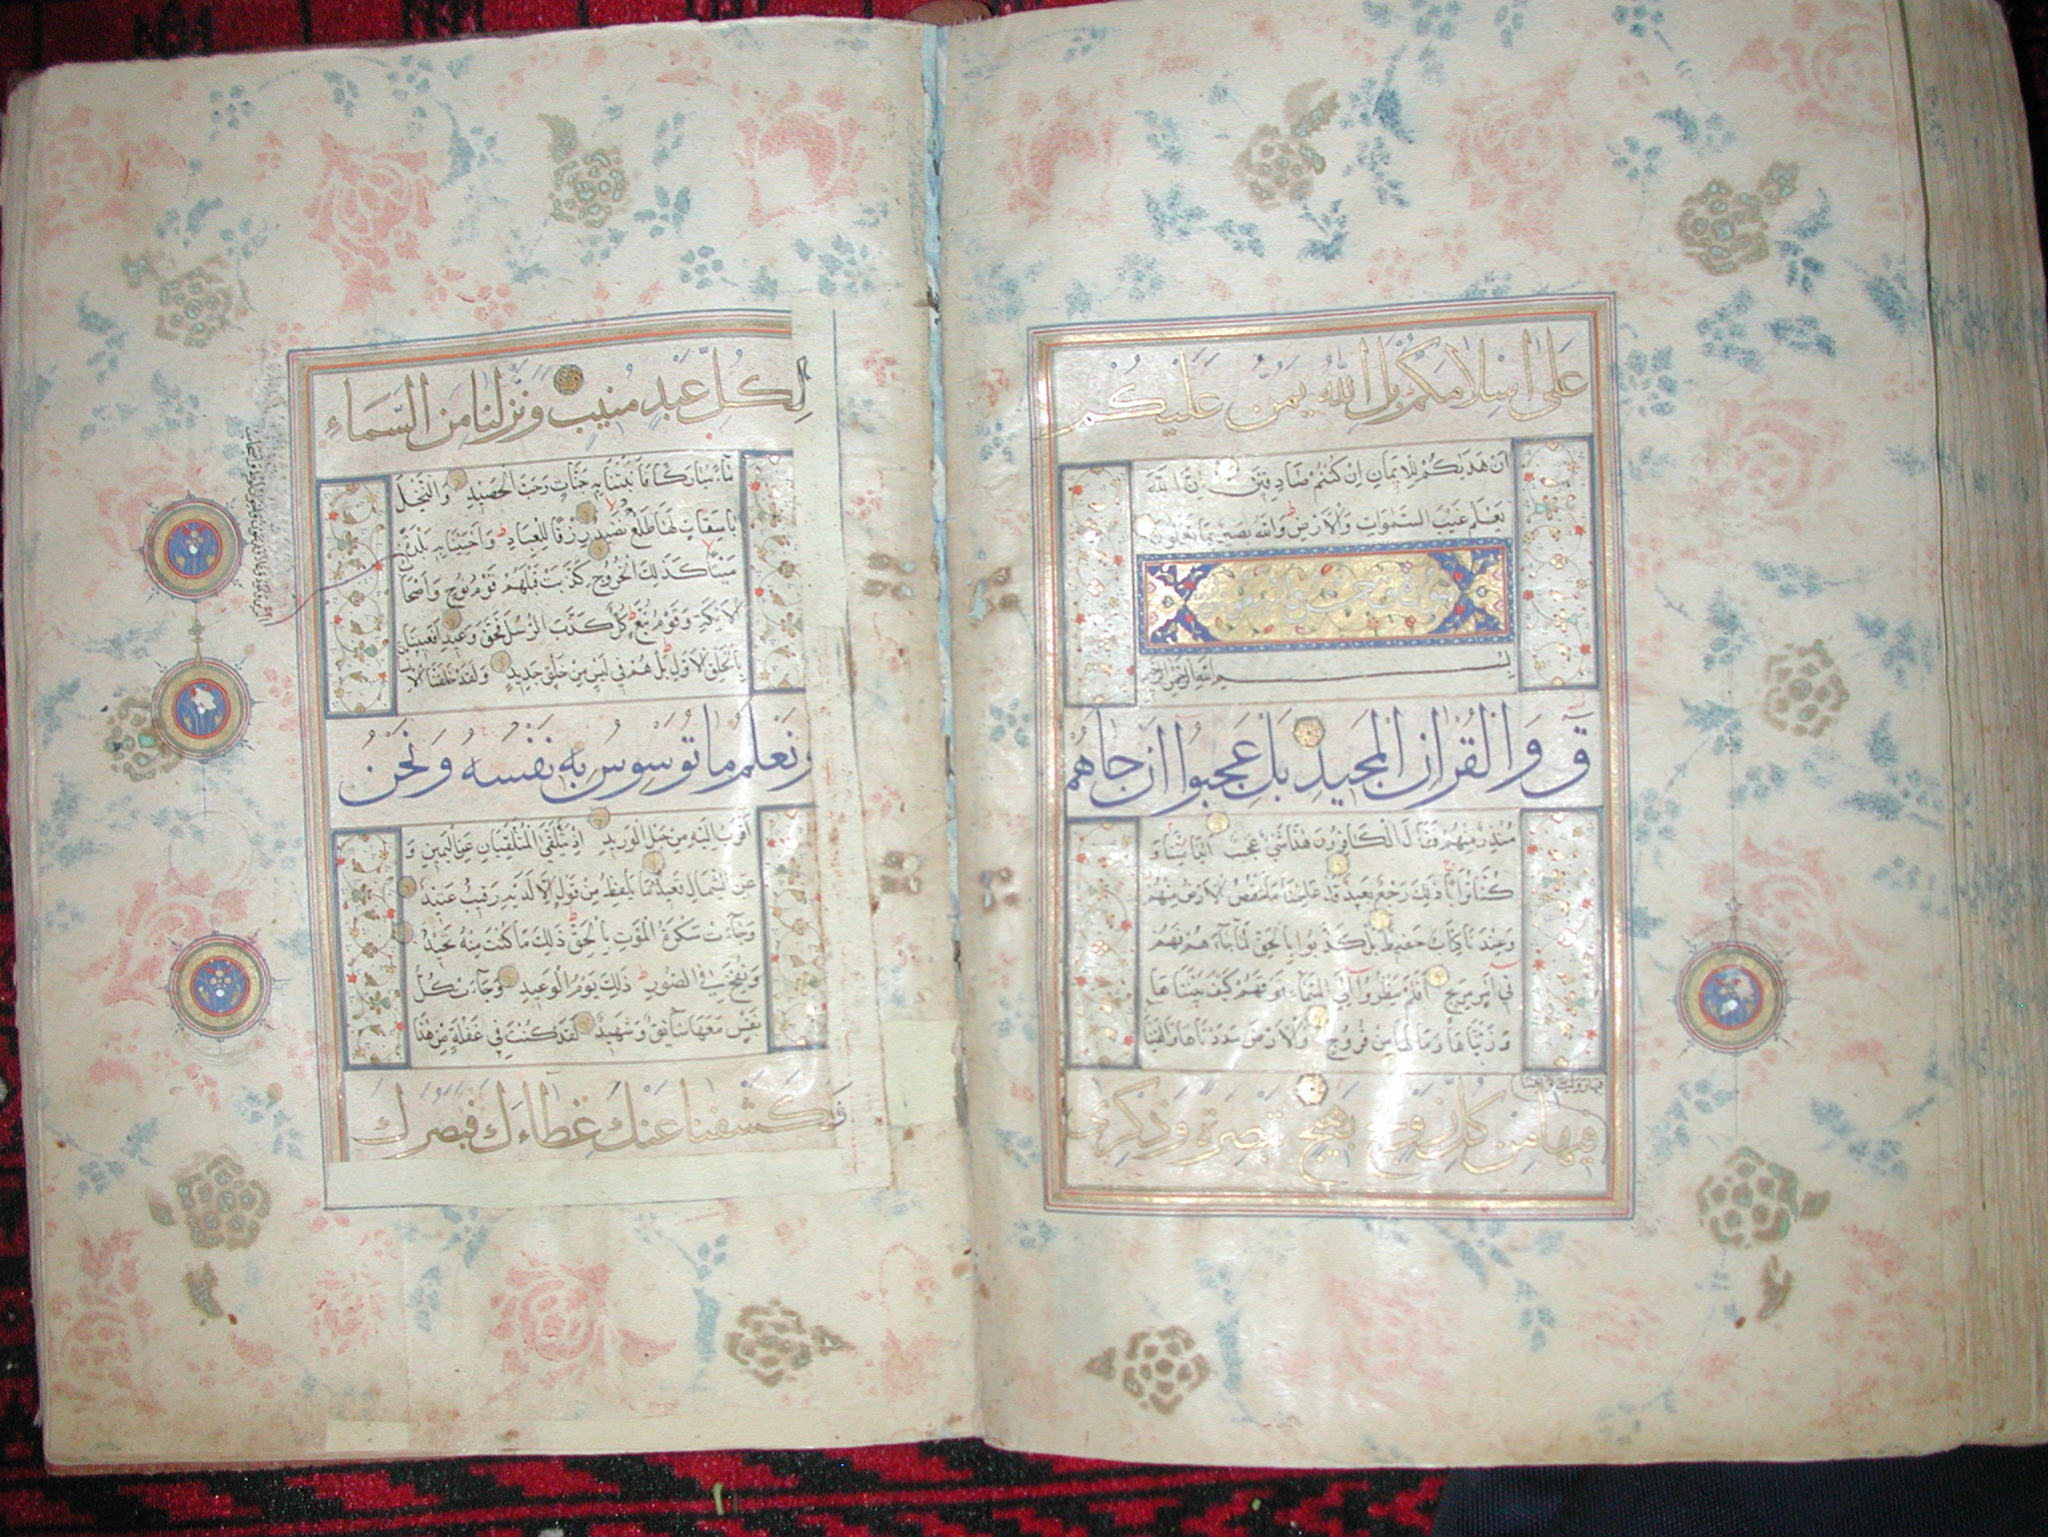 على اسلامكم بل الله يمن عليكم
ان هديكم للايمان ان كنتم صادقين ان الله
يعلم غيب السموات والارض والله بصير بما تعملون
سورة ق
بسم الله الرحمن الرحيم
ق والقران المجيد بل عجبوا ان جاهم
منذر منهم فقال الكافرون هذا شئ عجيب ائذا متنا و
كنا ترابا ذلك رجع بعيد قد علمنا ما تنقص الارض منهم
وعندنا كتاب حفيظ بل كذبوا بالحق لما جاءهم فهم
في امر مريج افلم ينظروا الى السماء فوقهم كيف بنيناها
وزيناها وما لها من فروج والارض مددناها والقينا
فيها من كل زوج بهيج تبصرة وذكرى
لكل عبد منيب ونزلنا من السماء
ماء مباركا فانبتنا به جنات وحب الحصيد والنخل
باسقات لها طلع نضيد رزقا للعباد واحيينا به بلدة
ميتا كذلك الخروج كذبت قبلهم قوم نوح واصحا
الايكة وقوم تبع كل كذب الرسل فحق وعيد افعيينا
بالخلق الاول بل هم في لبس من خلق جديد ولقد خلقنا الا
ونعلم ما توسوس به نفسه ونحن
اقرب اليه من حبل الوريد اذ يتلقى المتلقيان عن اليمين و
عن الشمال قعيد ما يلفظ من قول الا لديه رقيب عتيد
وجاءت سكرة الموت بالحق ذلك ما كنت منه تحيد
ونفخ في الصور ذلك يوم الوعيد وجاءت كل
نفس معها سائق وشهيد لقد كنت في غفلة من هذا
فكشفنا عنك غطاءك فبصرك